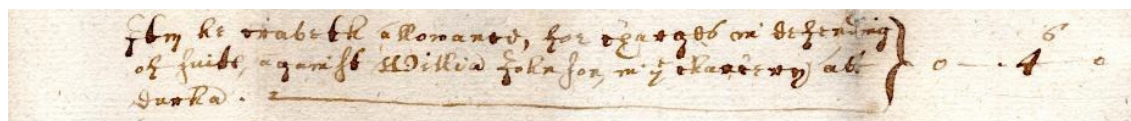 Itm he craveth allowance, for charges in defending
of suite, against Willia Johnson, in ye chancery att
durha . } 0 — . 4 6 0